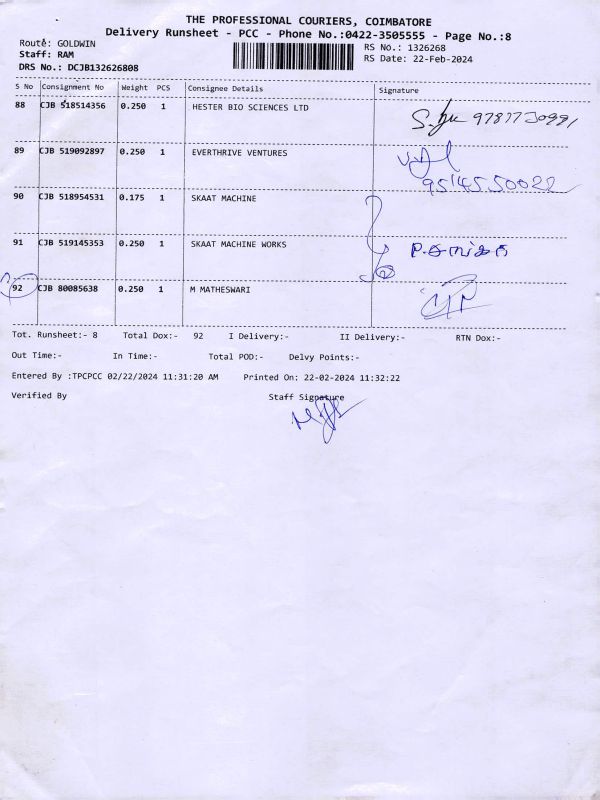 THE PROFESSIONAL COURIERS, COIMBATORE
Delivery Runsheet - PCC - Phone No.:0422-3505555 - Page No.:8
Route: GOLDWIN
RS No.: 1326268
Staff: RAM
RS Date: 22-Feb-2024
DRS No.: DCJB132626808
S No Consignment No Weight PCS Consignee Details Signature
88 CJB 518514356 0.250 1 HESTER BIO SCIENCES LTD
89 CJB 519092897 0.250 1 EVERTHRIVE VENTURES
9514550022
90 CJB 518954531 0.175 1 SKAAT MACHINE
91 CJB 519145353 0.250 1 SKAAT MACHINE WORKS
92 CJB 80085638 0.250 1 M MATHESWARI
Tot. Runsheet:- 8 Total Dox:- 92 I Delivery:- II Delivery:- RTN Dox:-
Out Time:- In Time:- Total POD:- Delvy Points:-
Entered By :TPCPCC 02/22/2024 11:31:20 AM Printed On: 22-02-2024 11:32:22
Verified By Staff Signature